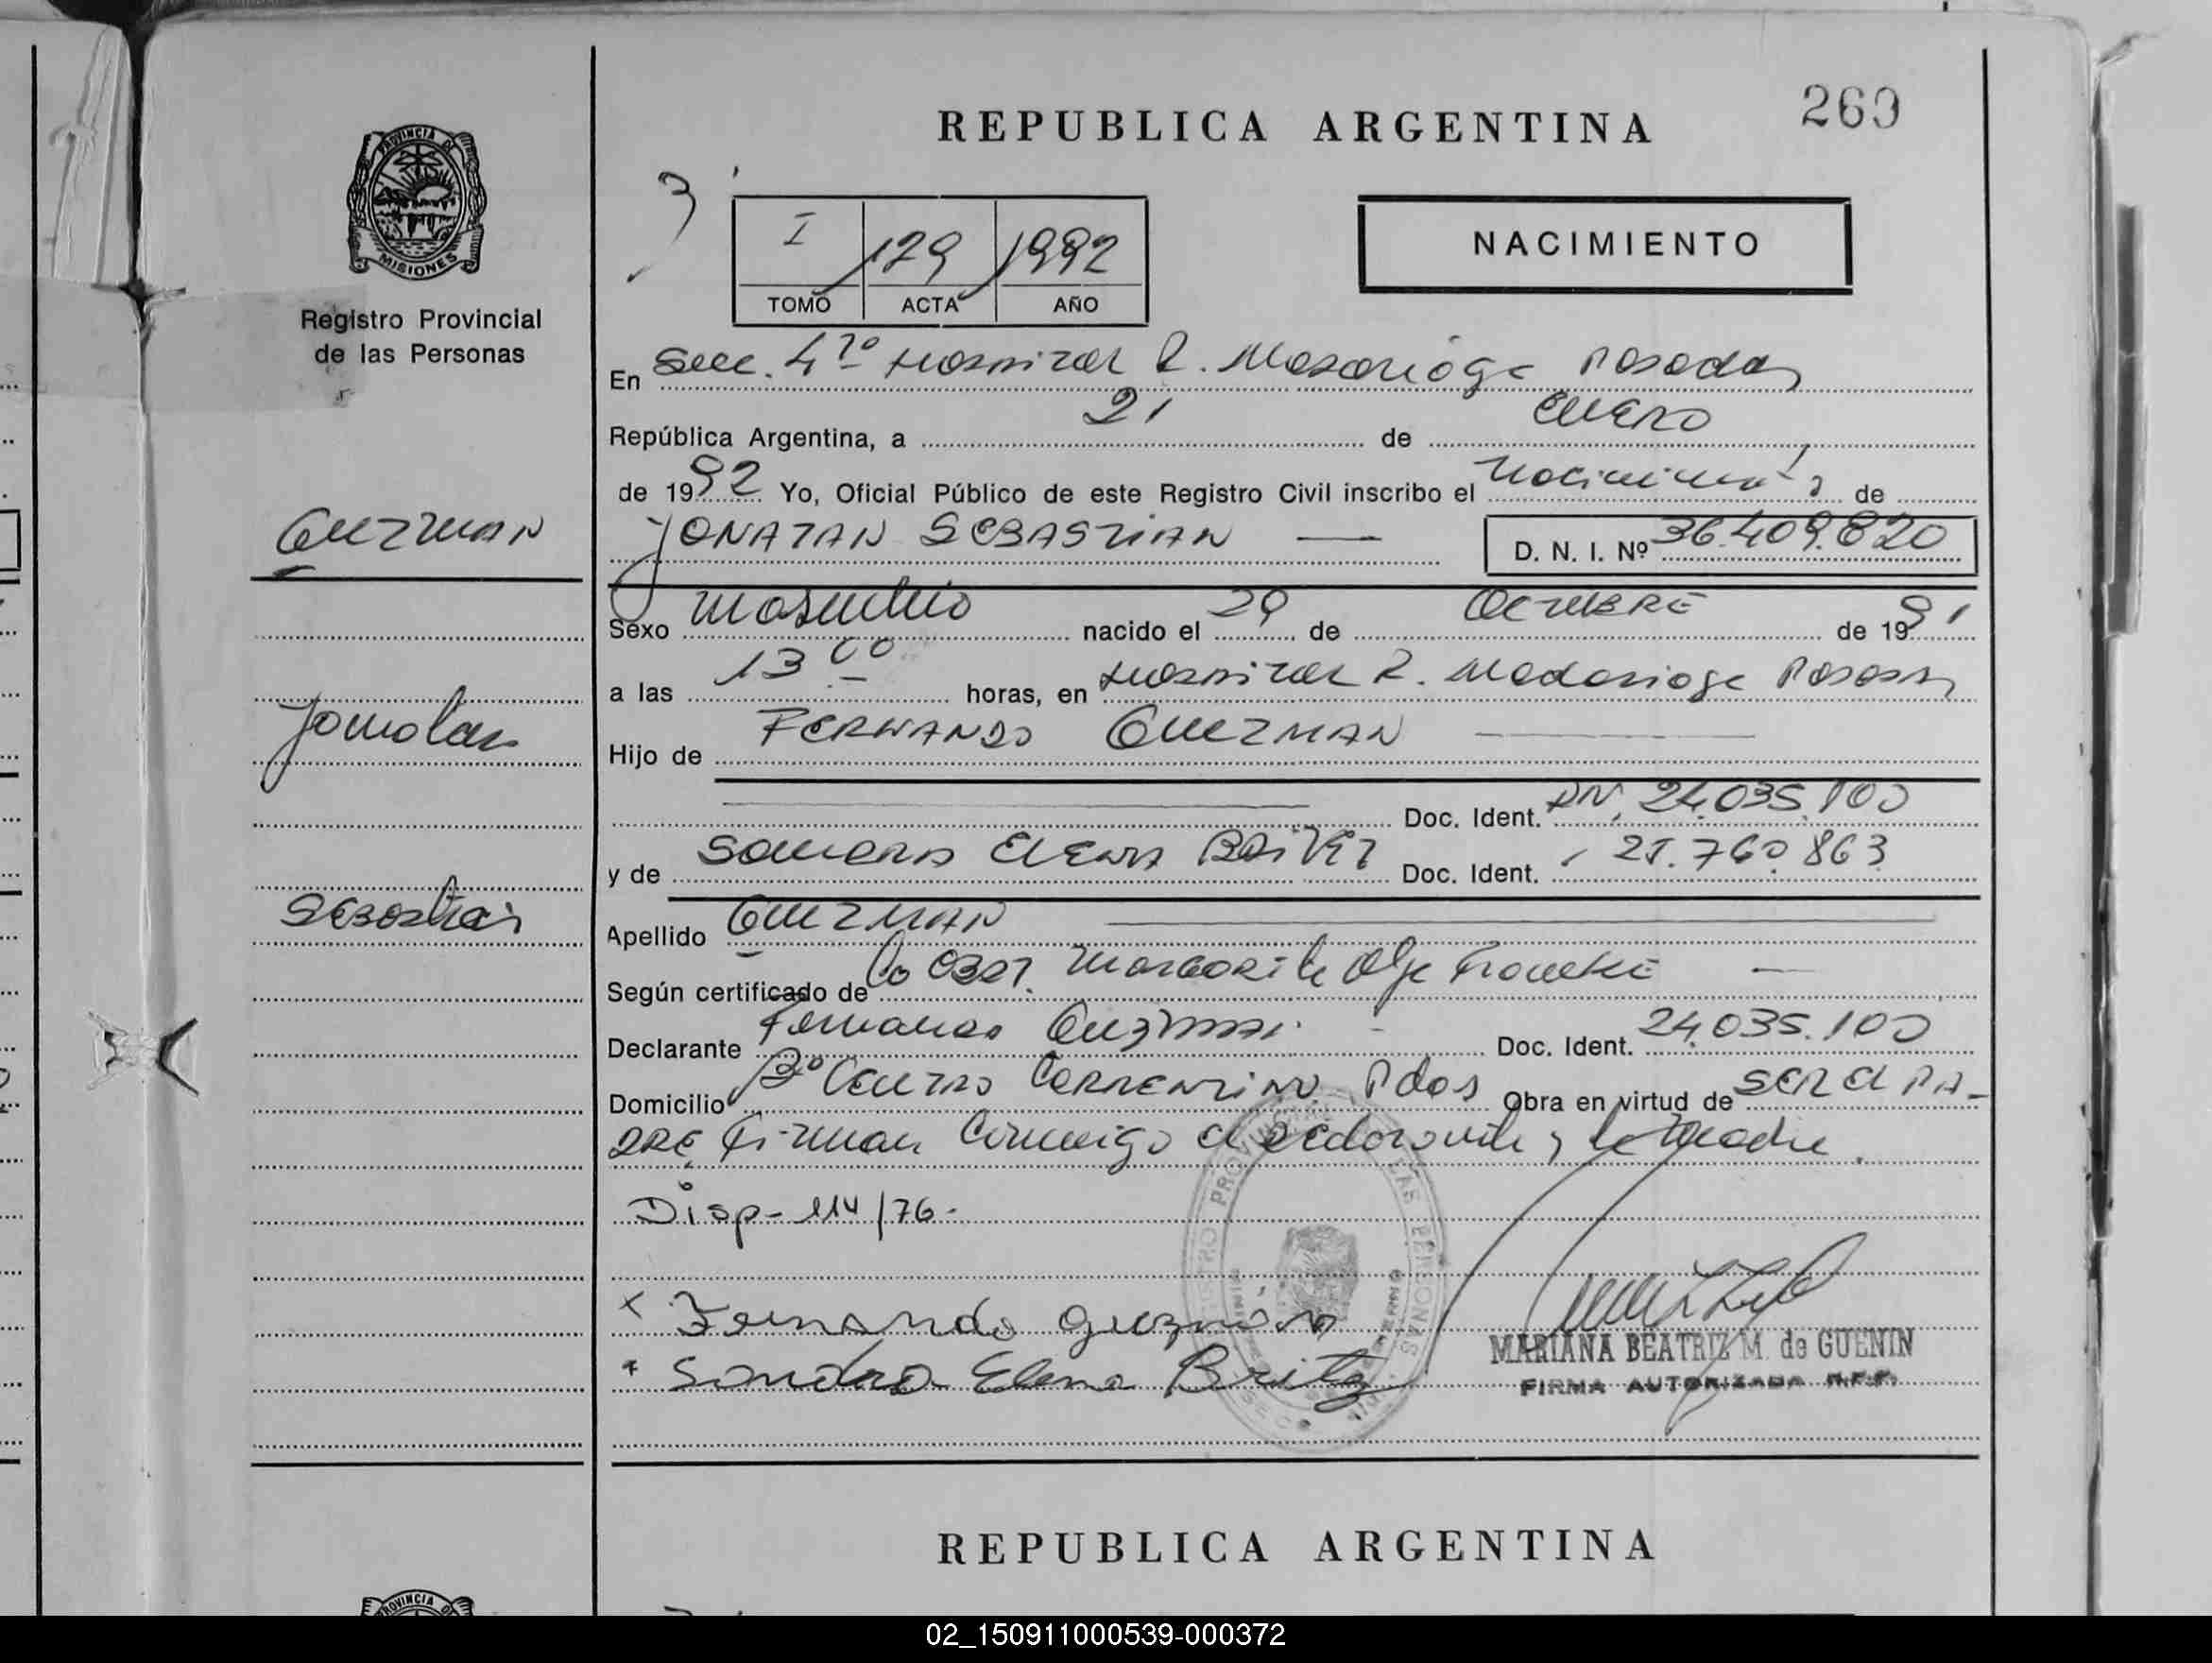 260
REPUBLICA ARGENTINA
PROVINCIA DE
MISIONES
Registro Provincial
de las Personas
I 129 1992
TOMO ACTA AÑO
NACIMIENTO
En Secc. 4ta Hospital R. Madariaga Posadas
República Argentina, a 21 de ENERO
de 1992 Yo, Oficial Público de este Registro Civil inscribo el nacimiento de
GUZMAN
JONATAN SEBASTIAN — D. N. I. Nº 36.409.820
Sexo masculino nacido el 29 de OCTUBRE de 1991
a las 13 00 horas, en Hospital R. Madariaga Posadas
Jonatan
Hijo de FERNANDO GUZMAN
Doc. Ident. DN. 24.035.100
y de SANDRA ELENA BRITEZ Doc. Ident. 21.760.863
Sebastian
Apellido GUZMAN
Según certificado de la OBST. Margarita Olga
Declarante Fernando Guzman Doc. Ident. 24.035.100
Domicilio Bº Centro CORRENTINO Pdas Obra en virtud de SER el PA-
DRE Firman Conmigo el declarante y la madre.
Disp- 114/76-
x Fernando guzmán
x Sandra Elena Britez
MARIANA BEATRIZ M. de GUENIN
FIRMA AUTORIZADA R.P.P.
REPUBLICA ARGENTINA
02_150911000539-000372